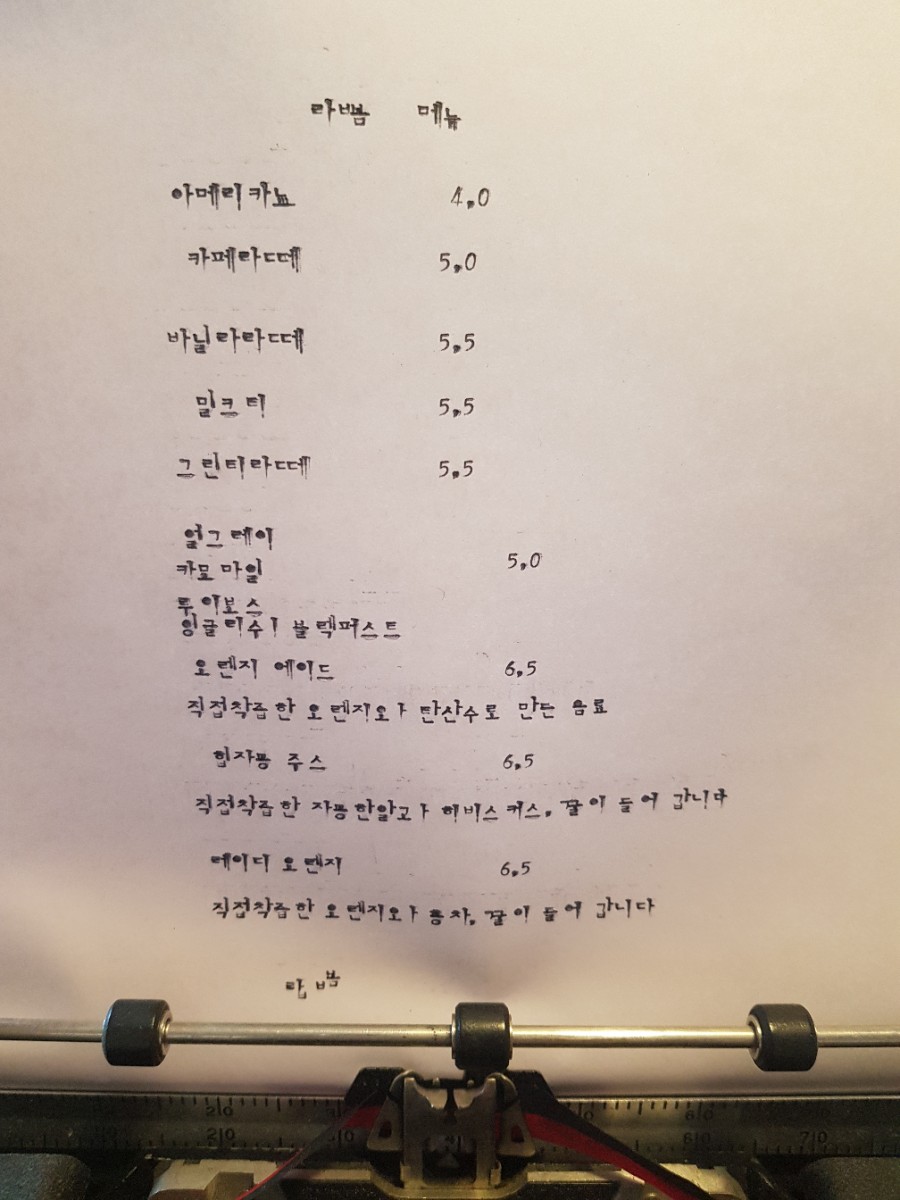 라쁨 메뉴
아메리카노 4,0
카페라떼 5,0
바닐라라떼 5,5
밀크티 5,5
그린티라떼 5,5
얼그레이
카모마일 5,0
루이보스
잉글리수ㅣ 블렉퍼스트
오렌지 에이드 6,5
직접착즙한 오렌지오ㅏ 탄산수로 만든 음료
힙자몽 주스 6,5
직접착즙한 자몽한알고ㅏ 히비스커스, 꿀이 들어 갑니다
레이디 오렌지 6,5
직접착즙한 오렌지오ㅏ 홍차, 꿀이 들어 갑니다
20 30 60
20 30 60 70